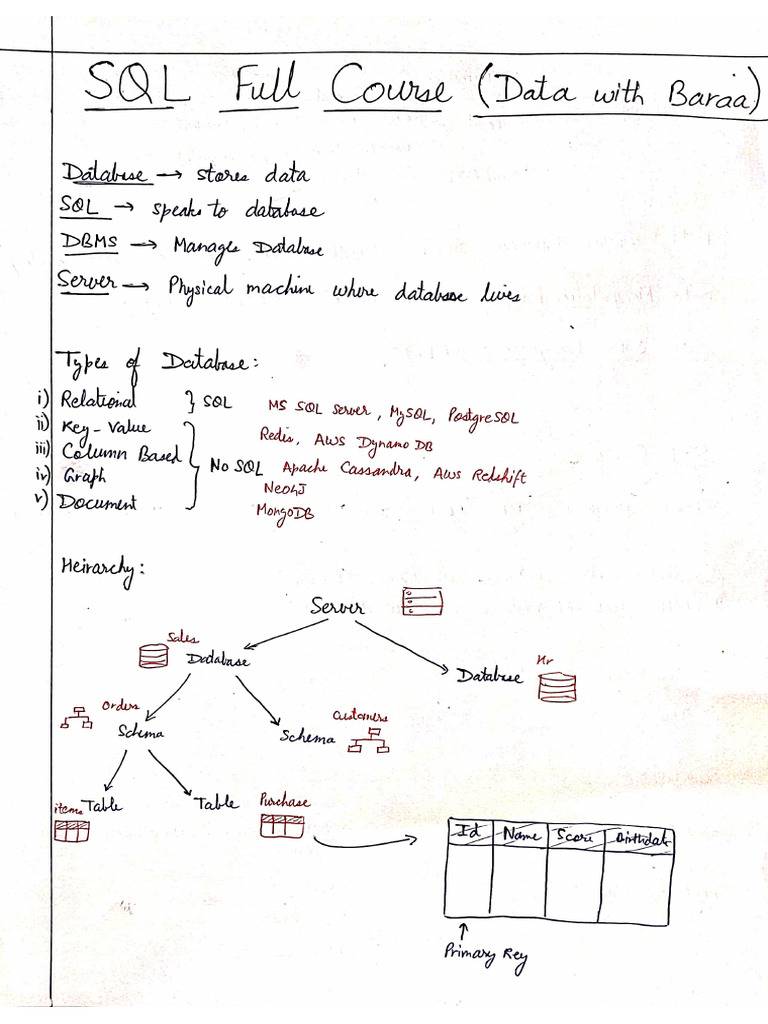 SQL Full Course (Data with Baraa)
Database → stores data
SQL → speaks to database
DBMS → Manages Database
Server → Physical machine where database lives
Types of Database:
i) Relational } SQL MS SQL Server, MySQL, PostgreSQL
ii) Key-Value Redis, AWS Dynamo DB
iii) Column Based
No SQL Apache Cassandra, AWS Redshift
iv) Graph Neo4J
v) Document MongoDB
Heirarchy:
Server
Sales
Database
Hr
Database
Orders
Schema
Customers
Schema
items Table
Table Purchase
Id Name Score Birthdate
Primary Key